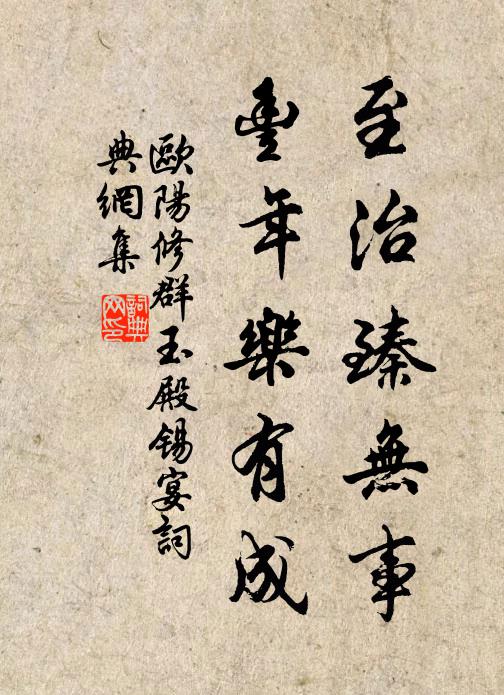 至治臻無事
豐年樂有成
歐陽修群玉殿錫宴詞
典網集
詞典
网印